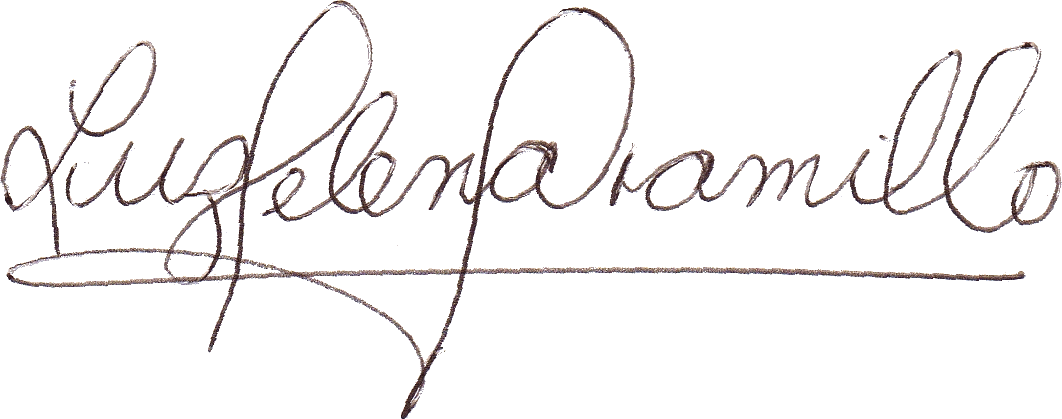 Luz Helena Jaramillo